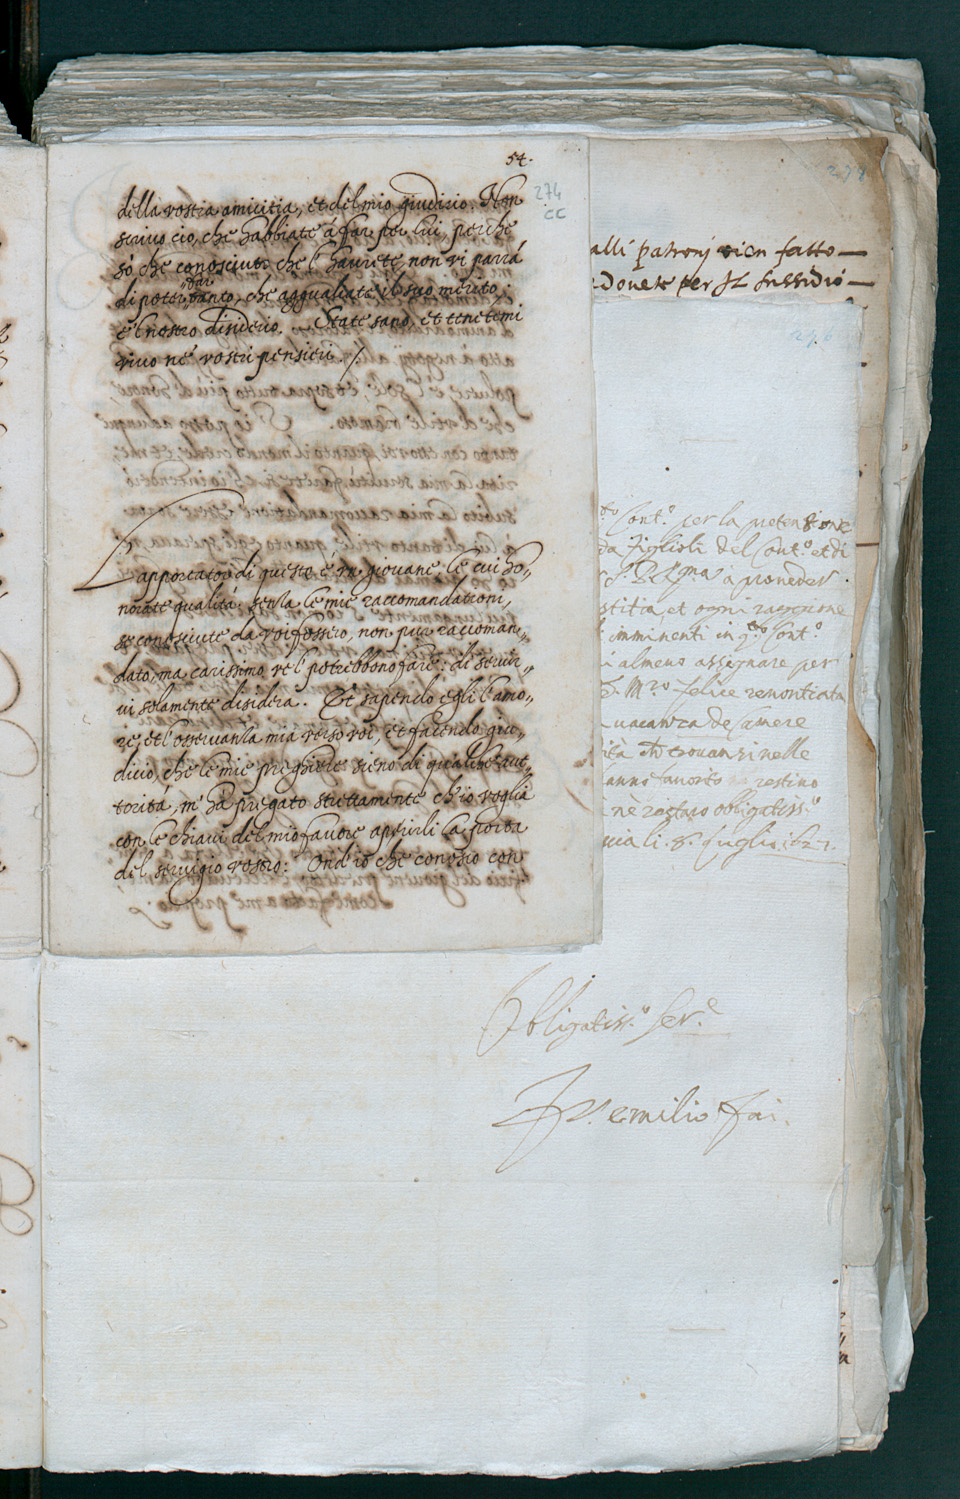 54.
274
CC
della vostra amicitia, et del mio giudicio. Non
scrivo ciò, che habbiate à far per lui, perche
sò che conosciuto che l'haurete non vi parrà
di poter far tanto, che agguagliate il suo merito;
e'l nostro disiderio. State sano, et tenetemi
vivo ne vostri pensieri. /
L'apportator di questo é un giovane le cui ho,,
norate qualità senza le mie raccomandationi,
se conosciute da voi fossero, non pur raccoman,,
dato, ma carissimo ve'l potrebbono fare: di servir,,
vi solamente disidera. Et sapendo egli l'amo,,
re, et l'osservanza mia verso voi, et facendo giu,,
dicio, che le mie preghiere sieno di qualche aut,,
torità, m'ha pregato strettamente ch'io voglia
con le chiavi del mio favore aprirli la porta
del servigio vostro: Ond'io che conosco con
278
alli patronj vien fatto
dovete per il sussidio
276
sont.o per la pretensione
da figlioli del sont.o et di
à proveder
stitia, et ogni raggione
imminenti in q.to sont.o
almeno assegnare per
felice renontiata
vacanza de
trovansi nelle
anno favorito restino
nè restaro obligatiss.o
li. 8. luglio 1627.
Obligatiss.o Ser.e
emilio fai.